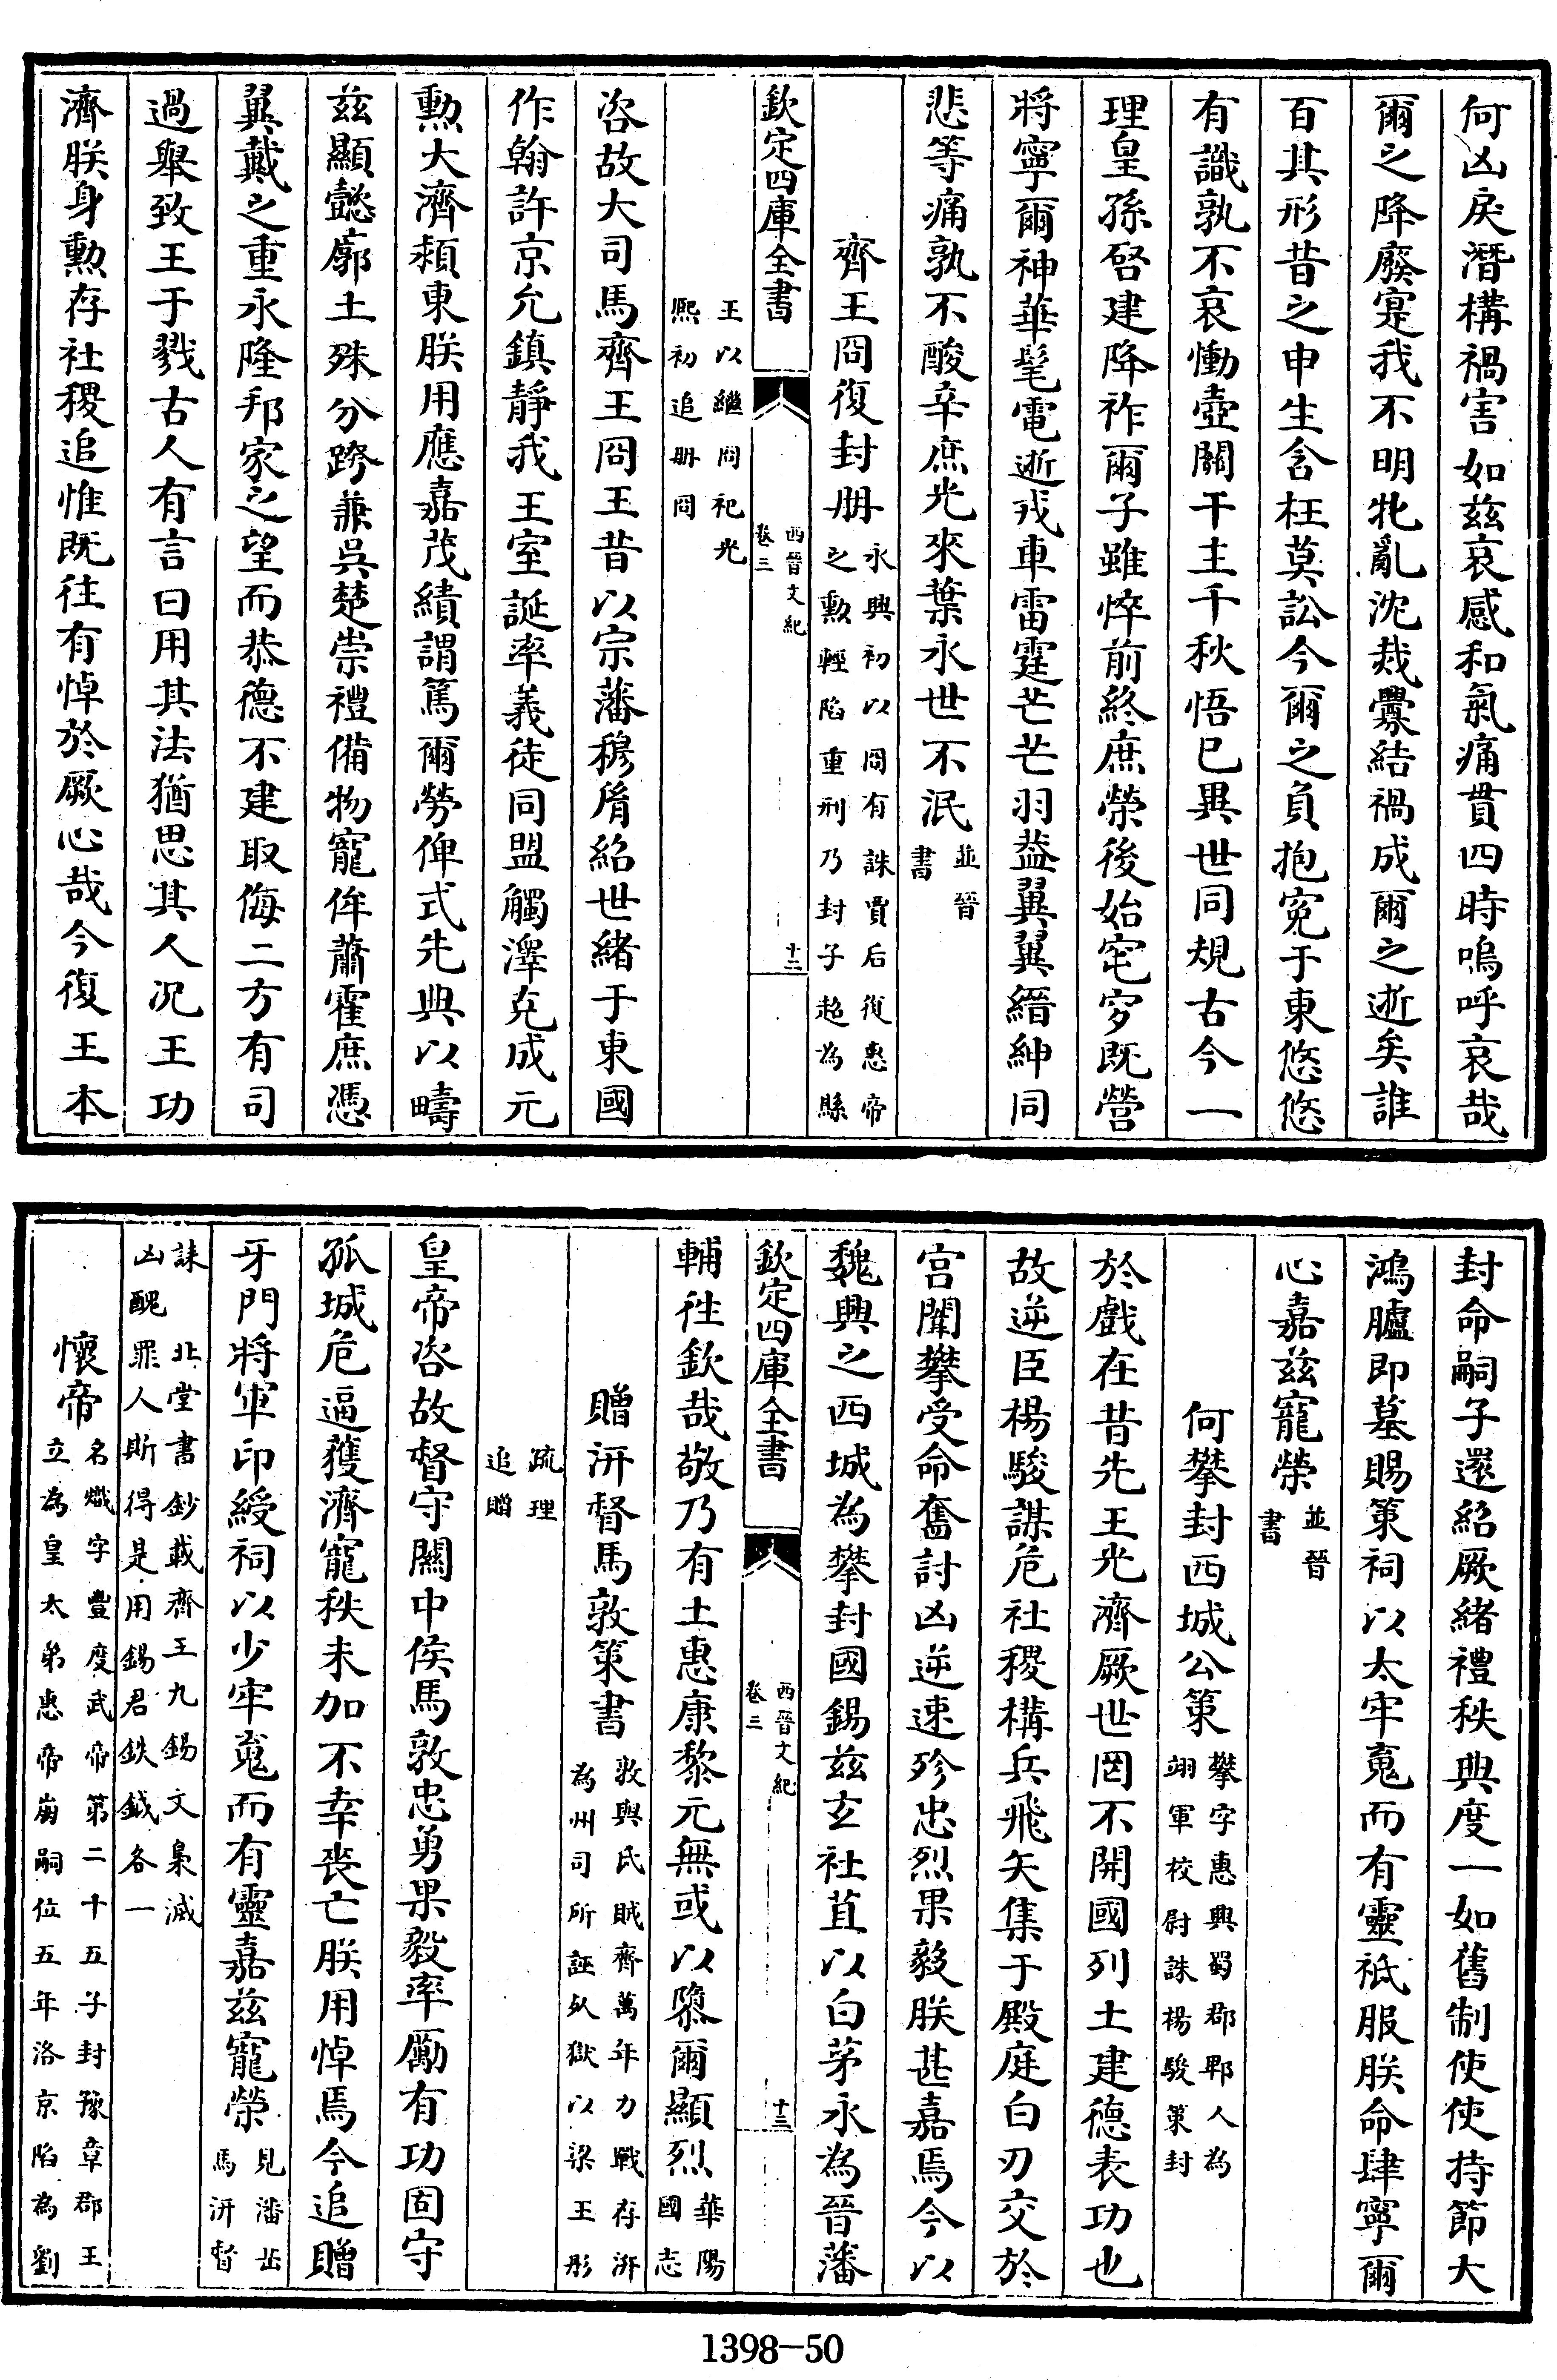 何凶戾潛構禍害如茲哀感和氣痛貫四時嗚呼哀哉
爾之降廢寔我不明牝亂沈烖釁結禍成爾之逝矣誰
百其形昔之申生含枉莫訟今爾之負抱寃于東悠悠
有識孰不哀慟壺關干主千秋悟已異世同規古今一
理皇孫啓建降祚爾子雖悴前終庶榮後始窀穸既營
將寧爾神華髦電逝戎車雷霆芒芒羽葢翼翼縉紳同
悲等痛孰不酸辛庶光來葉永世不泯並晉書
齊王冏復封冊永興初以冏有誅賈后復惠帝之勲輕陷重刑乃封子超為縣
欽定四庫全書 西晉文紀 卷三 十二
王以繼冏祀光熙初追冊冏
咨故大司馬齊王冏王昔以宗藩穆胤紹世緒于東國
作翰許京允鎮靜我王室誕率義徒同盟觸澤克成元
勲大濟潁東朕用應嘉茂績謂篤爾勞俾式先典以疇
茲顯懿廓土殊分跨兼吳楚崇禮備物寵侔蕭霍庶憑
翼戴之重永隆邦家之望而恭德不建取侮二方有司
過舉致王于戮古人有言曰用其法猶思其人况王功
濟朕身勲存社稷追惟既往有悼於厥心哉今復王本
封命嗣子還紹厥緒禮秩典度一如舊制使使持節大
鴻臚即墓賜策祠以太牢䰟而有靈祗服朕命肆寧爾
心嘉茲寵榮並晉書
何攀封西城公策攀字惠興蜀郡郫人為翊軍校尉誅楊駿策封
於戲在昔先王光濟厥世罔不開國列土建德表功也
故逆臣楊駿謀危社稷構兵飛矢集于殿庭白刃交於
宫闈攀受命奮討凶逆速殄忠烈果毅朕甚嘉焉今以
魏興之西城為攀封國錫茲玄社苴以白茅永為晉藩
欽定四庫全書 西晉文紀 卷三 十三
輔徃欽哉敬乃有土惠康黎元無或以隳爾顯烈華陽國志
贈汧督馬敦策書敦與氐賊齊萬年力戰存汧為州司所誣死獄以梁王肜
疏理追贈
皇帝咨故督守關中侯馬敦忠勇果毅率厲有功固守
孤城危逼獲濟寵秩未加不幸喪亡朕用悼焉今追贈
牙門將軍印綬祠以少牢䰟而有靈嘉茲寵榮見潘岳馬汧督
誄 北堂書鈔載齊王九錫文梟滅凶醜罪人斯得是用錫君鈇鉞各一
懷帝名熾字豐度武帝第二十五子封豫章郡王立為皇太弟惠帝崩嗣位五年洛京陷為劉
1398-50